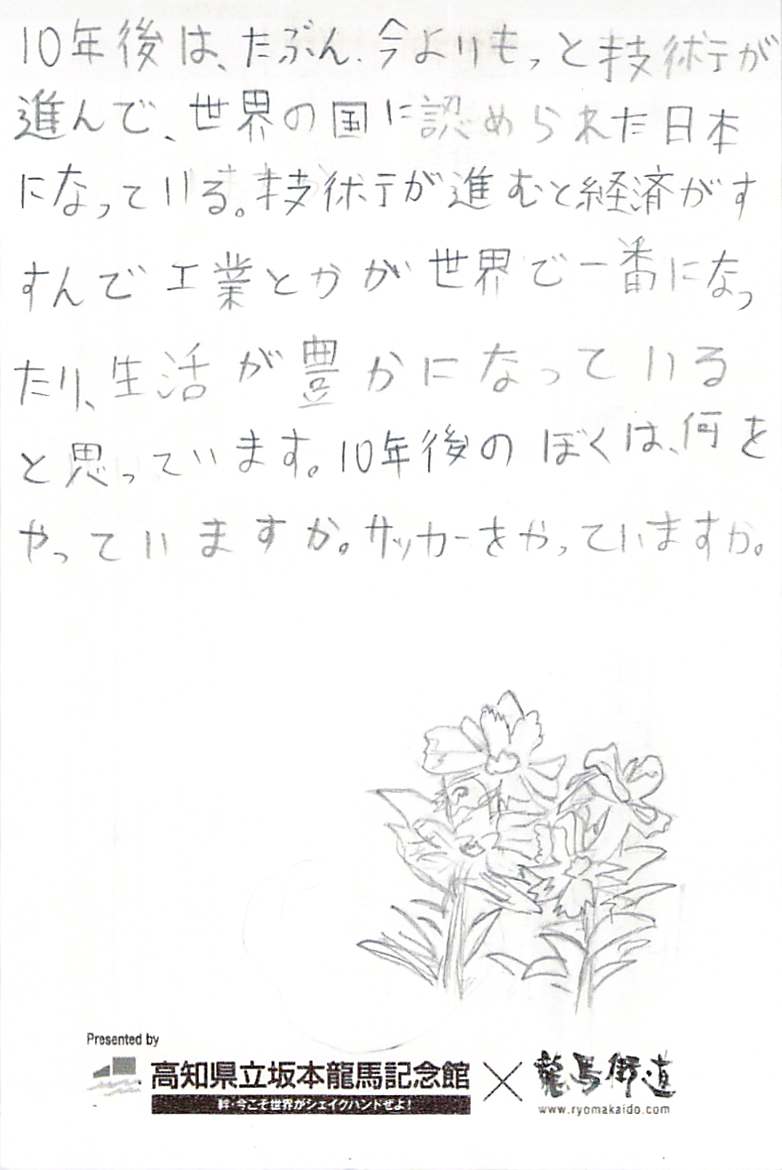 10年後は、たぶん、今よりもっと技術が
進んで、世界の国に認められた日本
になっている。技術が進むと経済がす
すんで工業とかが世界で一番になっ
たり、生活が豊かになっている
と思っています。10年後のぼくは、何を
やっていますか。サッカーをやっていますか。
Presented by
高知県立坂本龍馬記念館×龍馬街道
絆・今こそ世界がシェイクハンドせよ！
www.ryomakaido.com